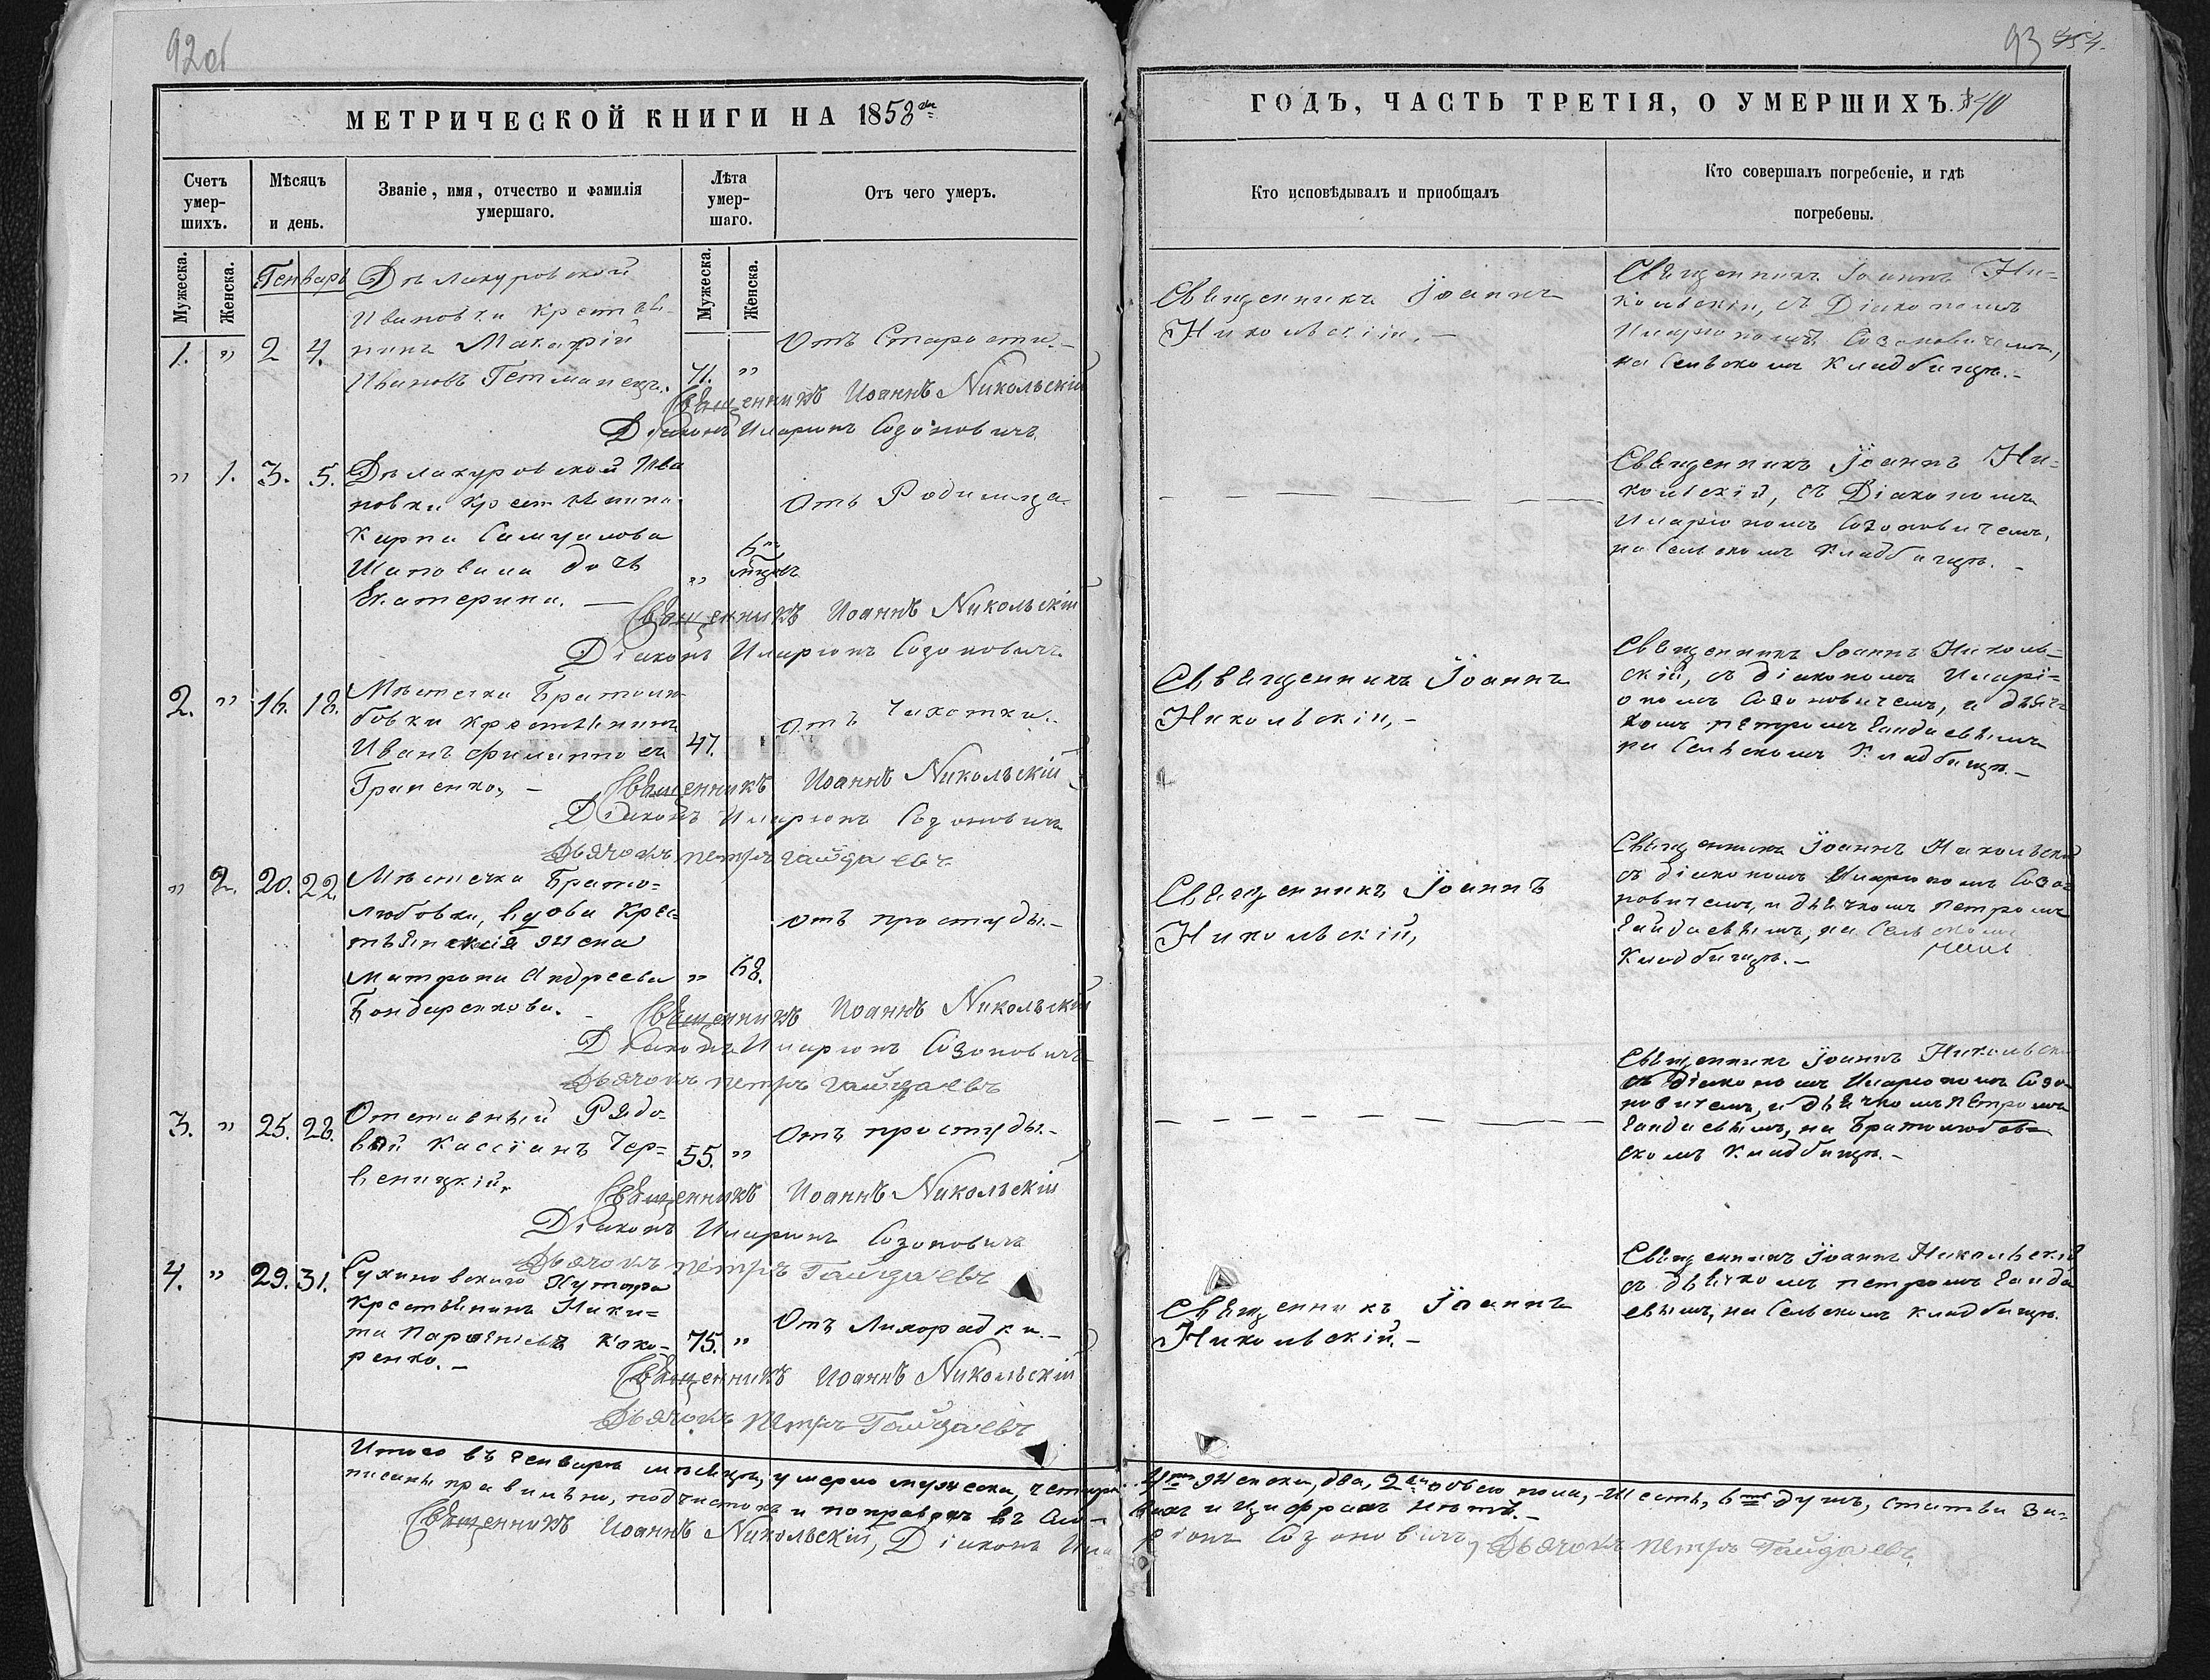 92 об
МЕТРИЧЕСКОЙ КНИГИ НА 1858
Счетъ умер-шихъ.
Мѣсяцъ и день.
Званіе, имя, отчество и фамилія умершаго.
Лѣта умер-шаго.
Отъ чего умеръ.
Мужеска.
Женска.
Мужеска.
Женска.
Генварь
1. " 2 4.
Ивановки Крестья-
нинъ Макарій
Ивановъ Гетманецъ.
71. "
Отъ Старости.-
Священникъ Иоаннъ Никольскій
Діаконъ Иларіонъ Созоновичъ
" 1. 3. 5.
Ива
новки Крестьянина
Карпа Самуилова
Шаповала дочь
Екатерина. —
" 6 мѣсяц.
Отъ Родимца
Священникъ Иоаннъ Никольскій
Діаконъ Иларіонъ Созоновичъ
2. " 16. 18.
Мѣстечка Братолю-
бовки крестьянинъ
Иванъ Филипповъ
Гриненко, -
47. "
Отъ Чахотки.-
Священникъ Иоаннъ Никольскій
Діаконъ Иларіонъ Созоновичъ
Дьячокъ Петръ Гайдаевъ.
" 2. 20. 22.
Мѣстечка Брато-
любовки, вдова Крес-
тьянская жена
Матрона Андреева
Бондаренкова. -
" 68.
Отъ простуды.-
Священникъ Иоаннъ Никольскій
Діаконъ Иларіонъ Созоновичъ
Дьячокъ Петръ Гайдаевъ
3. " 25. 28.
Отставный Рядо
вой Кассіанъ Чер-
веницкій.
55. "
Отъ простуды.-
Священникъ Иоаннъ Никольскій
Діаконъ Иларіонъ Созоновичъ
Дьячокъ Петръ Гайдаевъ
4. " 29. 31.
Сухиновскаго Хутора
Крестьянинъ Ники-
та Парѳеніевъ Коко-
ренко.-
75. "
Отъ Лихорадки.-
Священникъ Иоаннъ Никольскій
Дьячокъ Петръ Гайдаевъ
Итого въ Генварѣ мѣсяцѣ, умерло мужеска, четыре
писаны правильно, подчистокъ и поправокъ въ Сло-
Священникъ Иоаннъ Никольскій, Діаконъ Ила
93 454.
ГОДЪ, ЧАСТЬ ТРЕТІЯ, О УМЕРШИХЪ. 40
Кто исповѣдывалъ и приобщалъ
Кто совершалъ погребеніе, и гдѣ погребены.
Священникъ Іоаннъ
Никольскій. -
Священникъ Іоаннъ Ни-
кольскій, съ Діакономъ
Иларіономъ Созоновичемъ,
на Сельскомъ Кладбищѣ.-
Священникъ Іоаннъ Ни-
кольскій, съ Діакономъ
Иларіономъ Созоновичемъ,
на Сельскомъ Кладбищѣ. -
Священникъ Іоаннъ
Никольскій, -
Священникъ Іоаннъ Николь-
скій, съ діакономъ Иларі-
ономъ Созоновичемъ, и дьяч-
комъ Петромъ Гайдаевымъ
на Сельскомъ Кладбищѣ.-
Священникъ Іоаннъ
Никольскій,
Священникъ Іоаннъ Никольскій
съ діакономъ Иларіономъ Созо-
новичемъ, и дьячкомъ Петромъ
Гайдаевымъ, на Сельскомъ
Кладбищѣ.-
Священникъ Іоаннъ Никольскі
съ Діакономъ Иларіономъ Созо-
новичемъ, и дьячкомъ Петромъ
Гайдаевымъ, на Братолюбов-
скомъ Кладбищѣ.-
Священникъ Іоаннъ
Никольскій.-
Священникъ Іоаннъ Никольскій
съ дьячкомъ Петромъ Гайда
евымъ, на Сельскомъ Кладбищѣ.
4 Женска, два, 2 обоего пола, Шесть, 6 душъ, статьи за-
вахъ и Цифрахъ нѣтъ.-
ріонъ Созоновичъ, Дьячокъ Петръ Гайдаевъ.